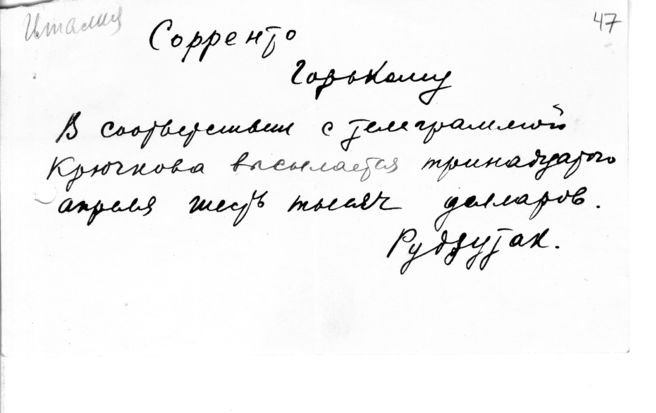 Италия
47
Сорренто
Горькому
В соответствии с телеграммой
Крючкова высылается тринадцатого
апреля шесть тысяч долларов.
Рудзутак.